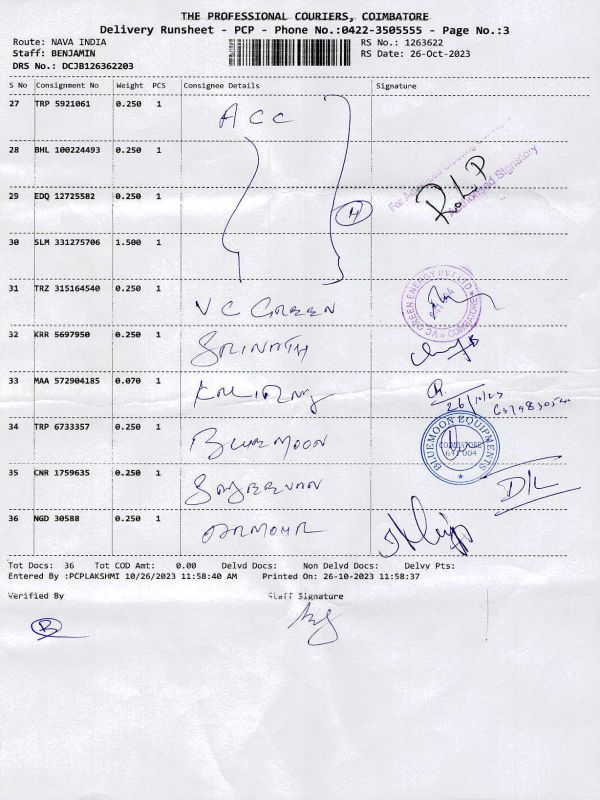 THE PROFESSIONAL COURIERS, COIMBATORE
Delivery Runsheet - PCP - Phone No.:0422-3505555 - Page No.:3
Route: NAVA INDIA RS No.: 1263622
Staff: BENJAMIN RS Date: 26-Oct-2023
DRS No.: DCJB126362203
S No Consignment No Weight PCS Consignee Details Signature
27 TRP 5921061 0.250 1 ACC
28 BHL 100224493 0.250 1
Authorised Signatory
29 EDQ 12725582 0.250 1
4
30 SLM 331275706 1.500 1
31 TRZ 315164540 0.250 1 VC GREEN
VG GREEN ENERGY PVT LTD
32 KRR 5697950 0.250 1 SRINATH
33 MAA 572904185 0.070 1
26/10/23
34 TRP 6733357 0.250 1 BLUEMOON
BLUEMOON EQUIPMENTS
COIMBATORE
641 004
35 CNR 1759635 0.250 1 SANJEEVAN D/L
36 NGD 30588 0.250 1
Tot Docs: 36 Tot COD Amt: 0.00 Delvd Docs: Non Delvd Docs: Delvy Pts:
Entered By :PCPLAKSHMI 10/26/2023 11:58:40 AM Printed On: 26-10-2023 11:58:37
Verified By Staff Signature